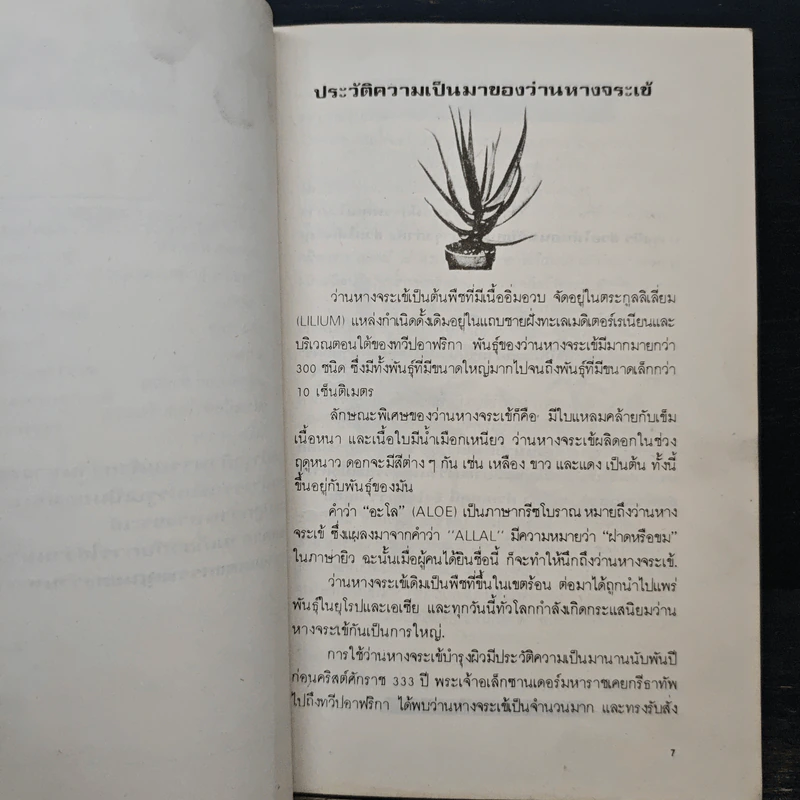 ประวัติความเป็นมาของว่านหางจระเข้
ว่านหางจระเข้เป็นต้นพืชที่มีเนื้ออิ่มอวบ จัดอยู่ในตระกูลลิเลี่ยม
(LILIUM) แหล่งกำเนิดดั้งเดิมอยู่ในแถบชายฝั่งทะเลเมดิเตอร์เรเนียนและ
บริเวณตอนใต้ของทวีปอาฟริกา พันธุ์ของว่านหางจระเข้มีมากมายกว่า
300 ชนิด ซึ่งมีทั้งพันธุ์ที่มีขนาดใหญ่มากไปจนถึงพันธุ์ที่มีขนาดเล็กกว่า
10 เซ็นติเมตร
ลักษณะพิเศษของว่านหางจระเข้ก็คือ มีใบแหลมคล้ายกับเข็ม
เนื้อหนา และเนื้อใบมีน้ำเมือกเหนียว ว่านหางจระเข้ผลิดอกในช่วง
ฤดูหนาว ดอกจะมีสีต่าง ๆ กัน เช่น เหลือง ขาว และแดง เป็นต้น ทั้งนี้
ขึ้นอยู่กับพันธุ์ของมัน
คำว่า "อะโล" (ALOE) เป็นภาษากรีซโบราณ หมายถึงว่านหาง
จระเข้ ซึ่งแผลงมาจากคำว่า "ALLAL" มีความหมายว่า "ฝาดหรือขม"
ในภาษายิว ฉะนั้นเมื่อผู้คนได้ยินชื่อนี้ ก็จะทำให้นึกถึงว่านหางจระเข้.
ว่านหางจระเข้เดิมเป็นพืชที่ขึ้นในเขตร้อน ต่อมาได้ถูกนำไปแพร่
พันธุ์ในยุโรปและเอเซีย และทุกวันนี้ทั่วโลกกำลังเกิดกระแสนิยมว่าน
หางจระเข้กันเป็นการใหญ่.
การใช้ว่านหางจระเข้บำรุงผิวมีประวัติความเป็นมานานนับพันปี
ก่อนคริสต์ศักราช 333 ปี พระเจ้าอเล็กซานเดอร์มหาราชเคยกรีธาทัพ
ไปถึงทวีปอาฟริกา ได้พบว่านหางจระเข้เป็นจำนวนมาก และทรงรับสั่ง
7